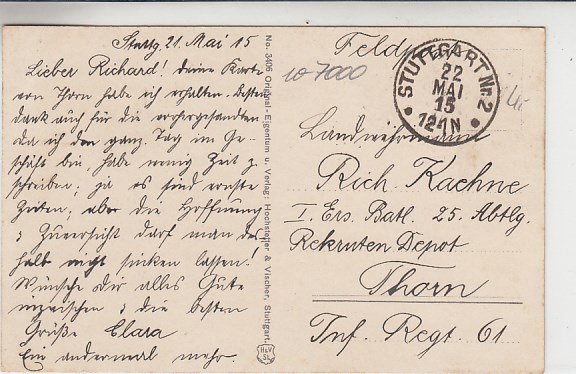 Stuttg. 21. Mai 15
Lieber Richard! deine Karte
von Thorn habe ich erhalten. Besten
dank auch für die vorhergesandten.
Da ich den ganz. Tag im Ge-
schäft bin habe wenig Zeit z.
schreiben; ja es sind ernste
Zeiten, aber die Hoffnung
& Zuversicht darf man des
halb nicht sinken lassen!
Wünsche Dir alles Gute
inzwischen & die besten
Grüße Clara
Ein andermal mehr.
No. 3406 Original-Eigentum u. Verlag: Hochstetter & Vischer, Stuttgart.
H&V
St.
Feldpost
10 7000
STUTTGART Nr. 2
22
MAI
15
12-1N
Landwehrmann
Rich. Kaehne
I. Ers. Batl. 25. Abtlg.
Rekruten Depot
Thorn
Inf. Regt. 61.